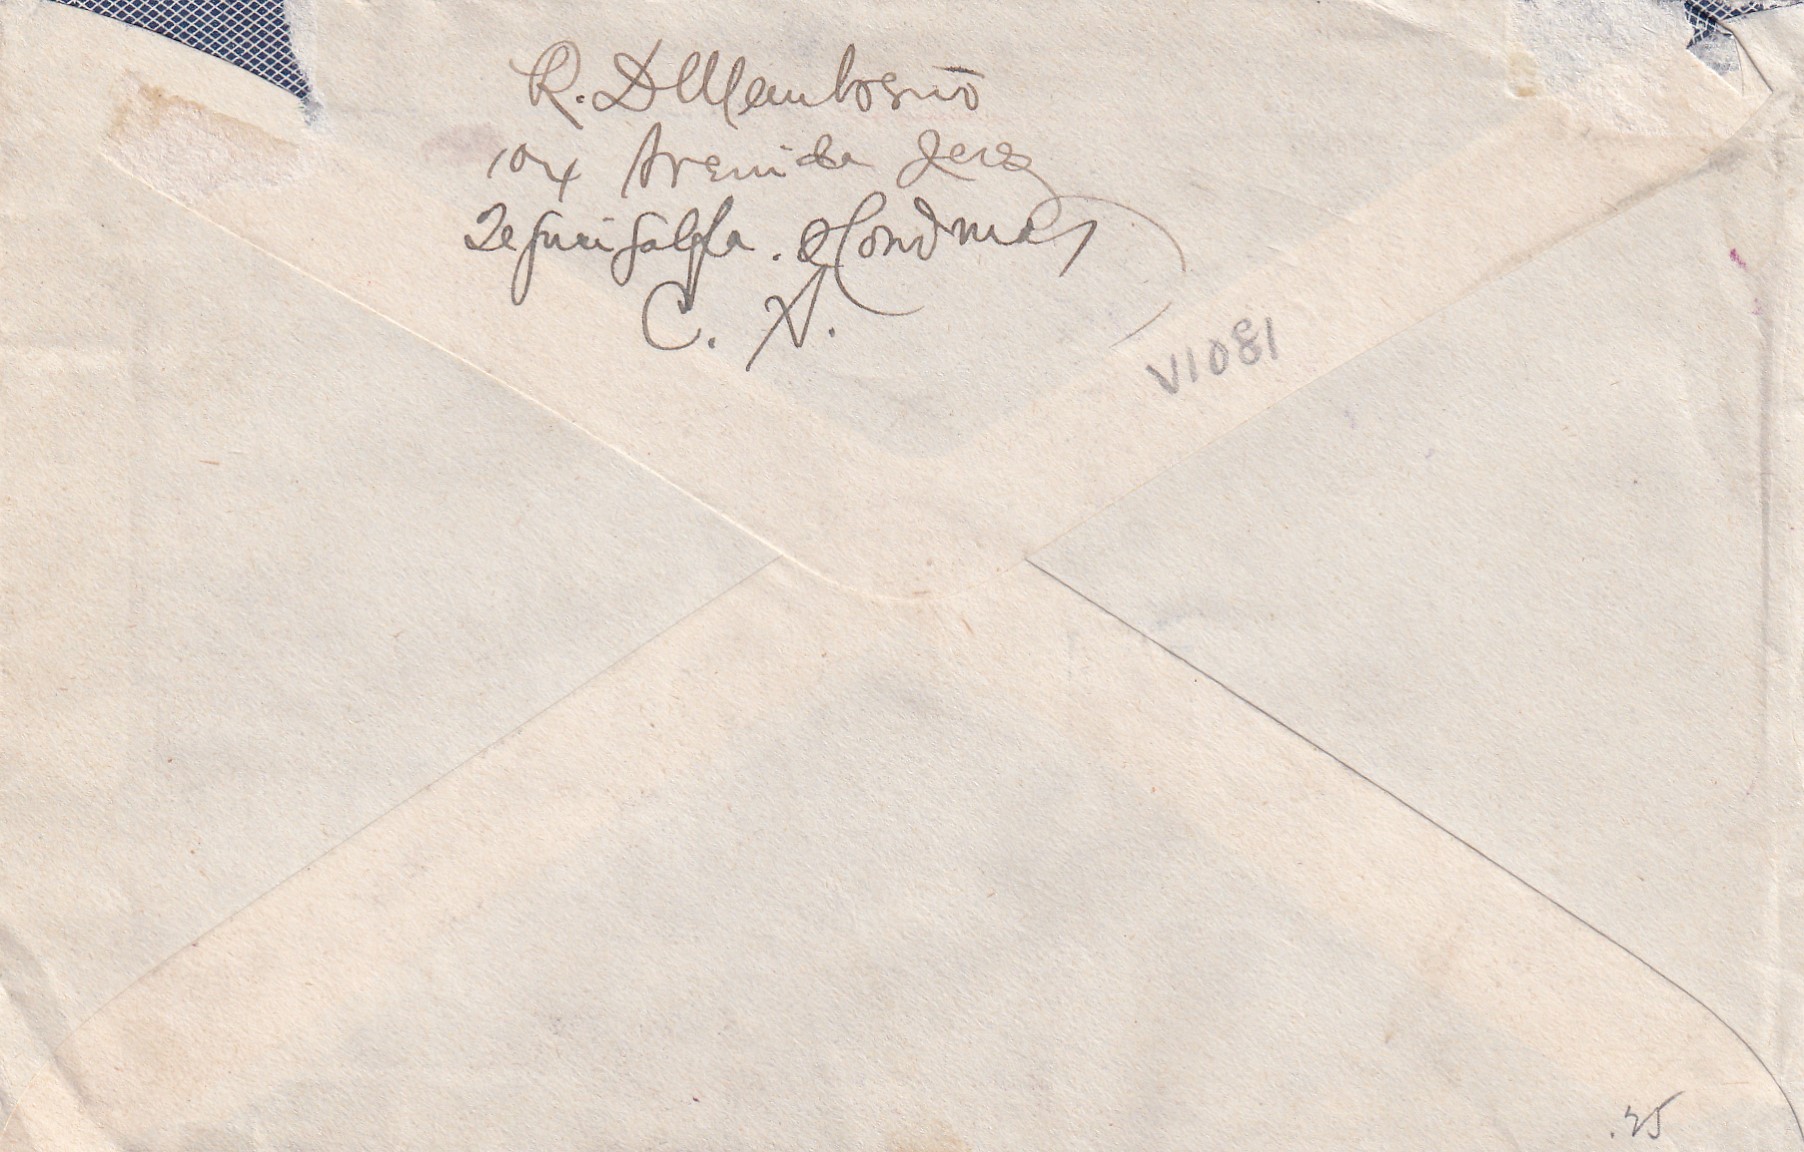 R. D
104 Avenida Jerez
Tegucigalpa. Honduras
C. A.
V1081
.25